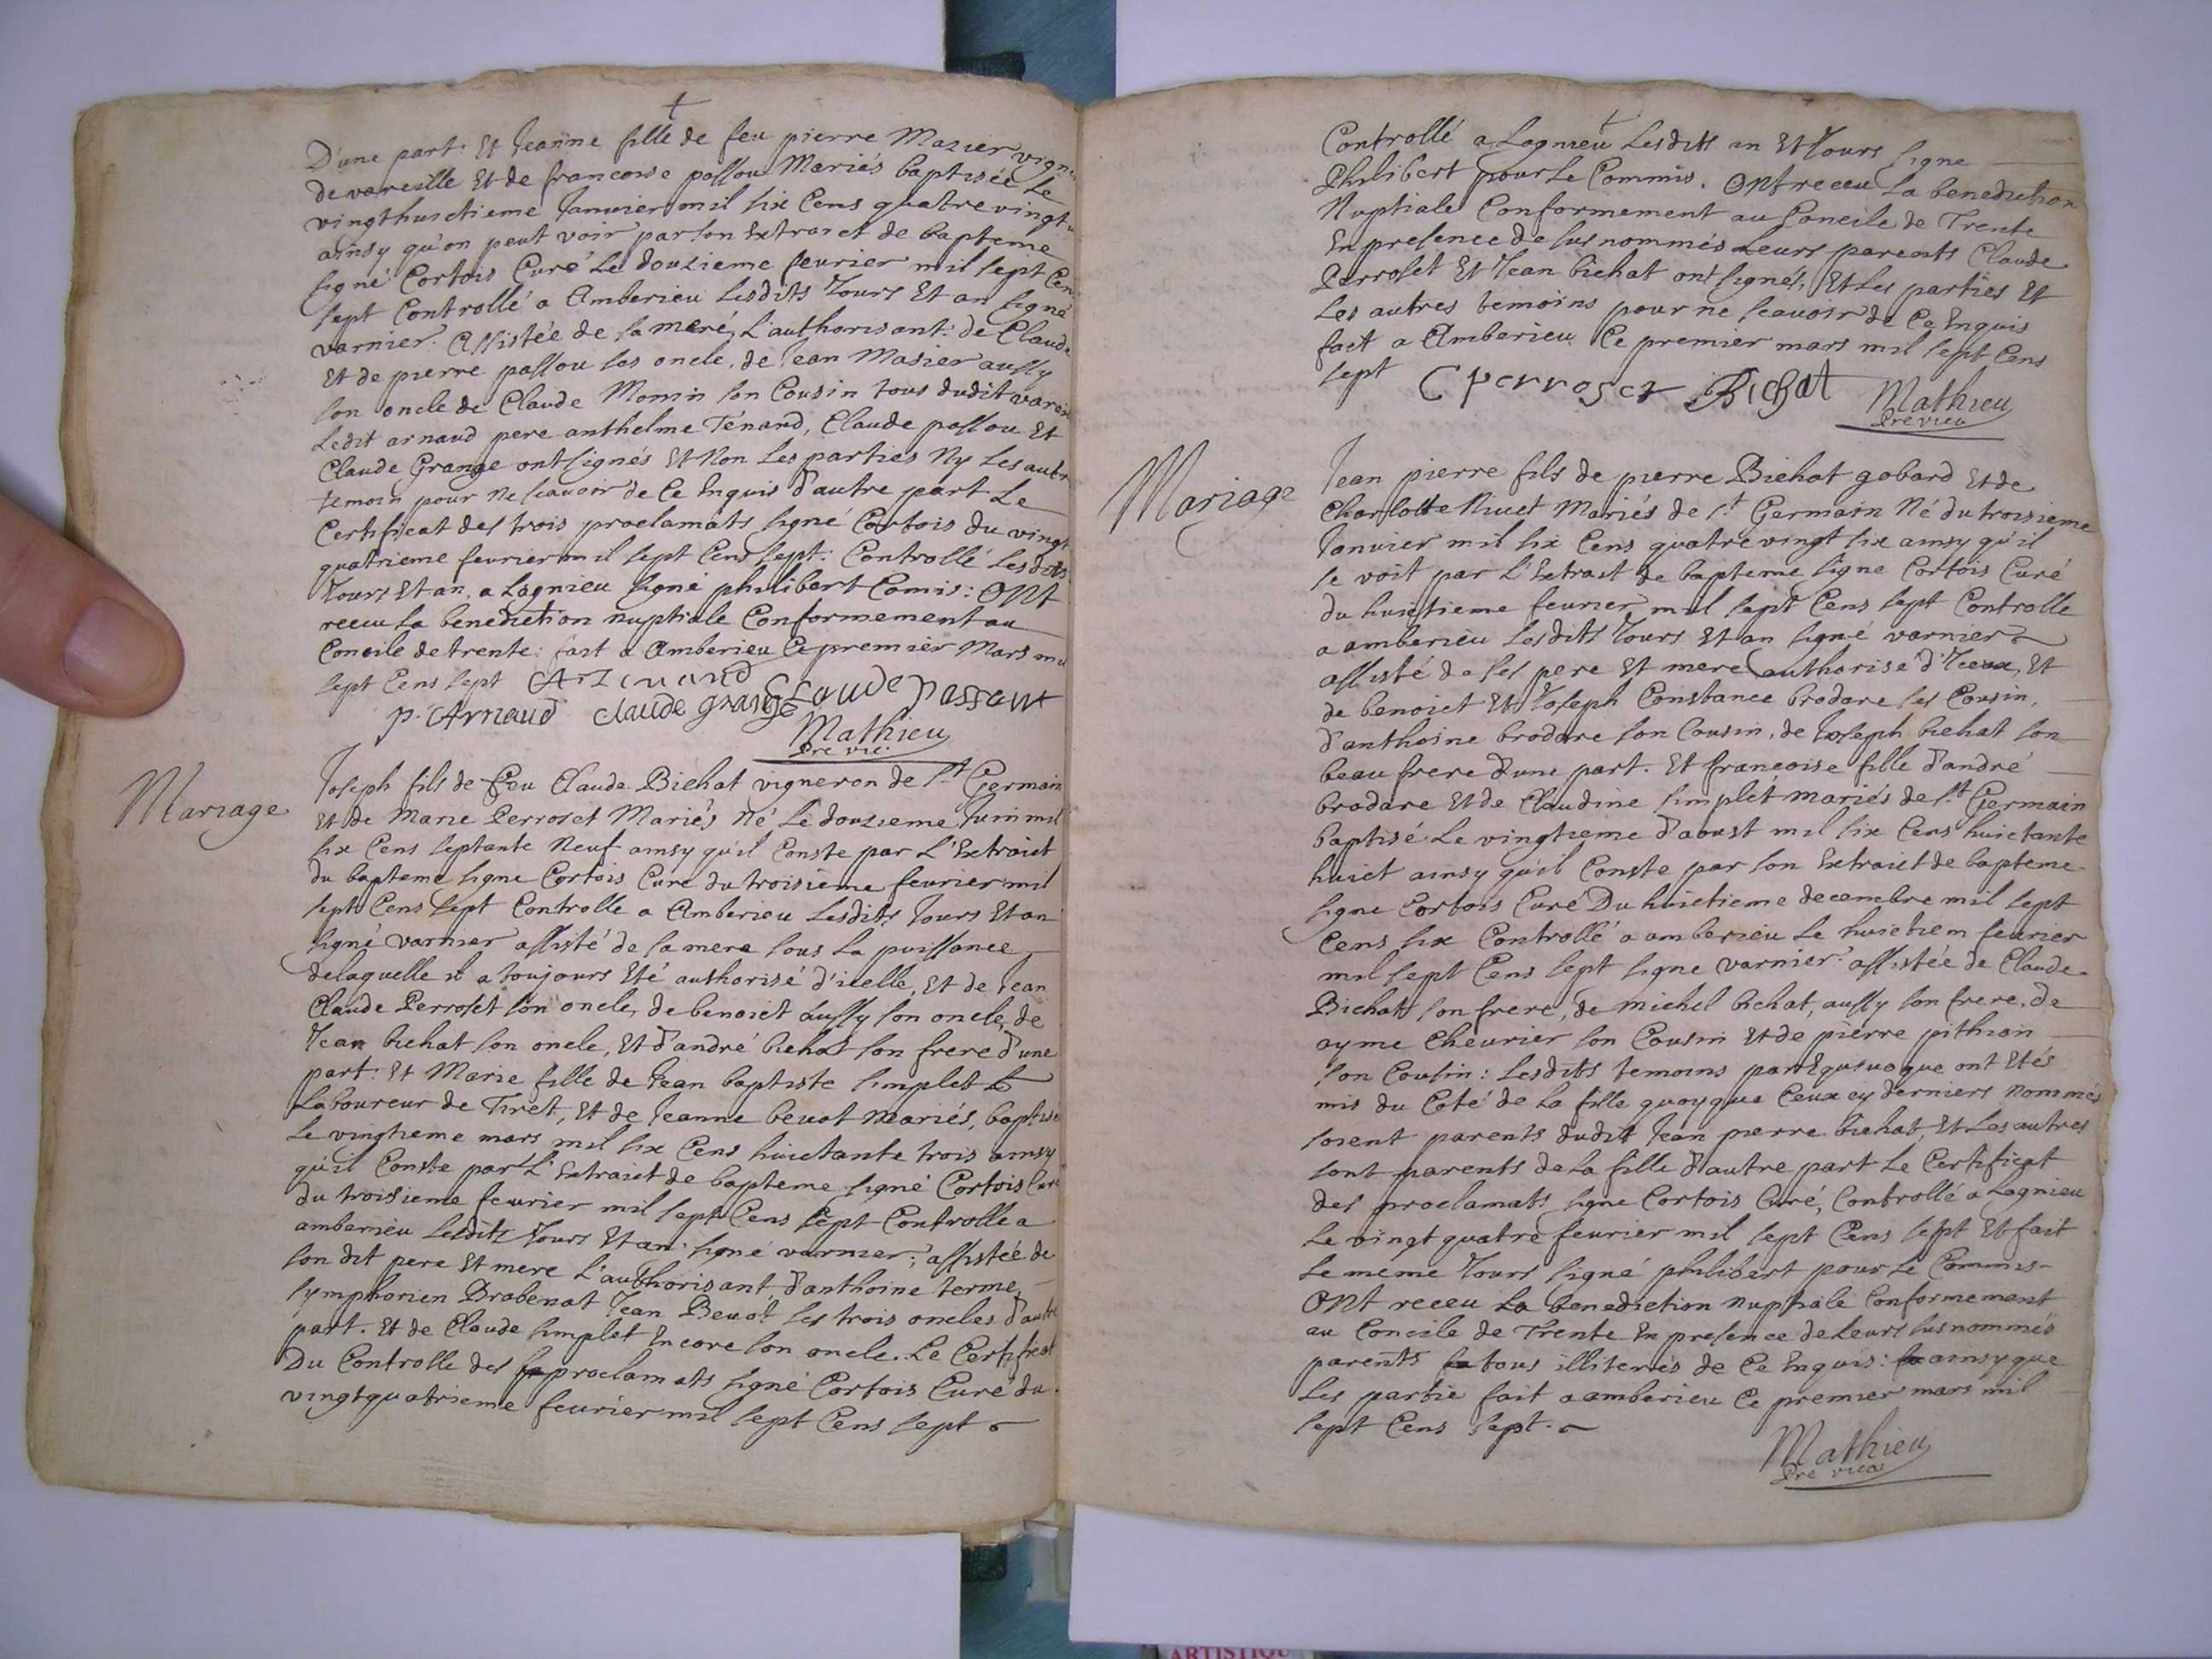 D'une part. Et Jeanne fille de feu pierre Mazier vign
de vareille Et de francoise passou Mariés baptisée Le
vingthuictieme Janvier mil six Cens quatre vingt
ainsy qu'on peut voir par son Extraict de bapteme
signé Cortois Curé Le douzieme feurier mil sept Cen
sept Controllé a Amberieu Lesdits Jours Et an signé
varnier. Assistée de sa meré L'authorisant: de Claude
Et de pierre passou ses oncle, de Jean Masier aussy
son oncle de Claude Momin son Cousin tous dudit vareil
Ledit arnaud pere anthelme Tenand, Claude passou Et
Claude Grange ont signés Et Non Les parties Ny Les autr
temoin pour ne scauoir de Ce Enquis d'autre part Le
Certificat des trois proclamats signé Cortois du vingt
quatrieme feurier mil sept Cens sept: Controllé Lesdits
Jours Et an, a Lagnieu signé philibert Comis: ONt
receu La benediction nuptiale Conformement au
Concile de trente: fait a Amberieu Ce premier Mars mil
sept Cens sept
P. Arnaud Claude Grange Claude Passout
Mathieu
Pre vic.
Mariage
Joseph fils de feu Claude Bichat vigneron de St Germain
Et de Marie Perroset Mariés Né Le douzieme Juin mil
six Cens septante Neuf ainsy qu'il Conste par L'Extraict
du bapteme signe Cortois Cure du troisieme feurier mil
sept Cens sept Controlle a Amberieu Lesdits Jours Et an
signé varnier assisté de sa mere sous La puissance
delaquelle il a toujours Eté authorisé d'icelle, Et de Jean
Claude Perroset son oncle, de benoict aussy son oncle, de
Jean bichat son oncle, Et d'andré bichat son frere d'une
part: Et Marie fille de Jean baptiste simplet
Laboureur de Tiret, Et de Jeanne beuot Mariés, baptisé
Le vingtieme mars mil six Cens huictante trois ainsy
qu'il Conste par L'Extraict de bapteme signé Cortois Curé
du troisieme feurier mil sept Cens sept Controlle a
amberieu Lesdits Jours Et an signé varnier; assistée de
son dit pere Et mere L'authorisant, d'anthoine terme,
symphorien Brabenat Jean Beuot ses trois oncles d'autre
part. Et de Claude simplet Encore son oncle. Le Certificat
Du Controlle des proclamats signé Cortois Curé du
vingtquatrieme feurier mil sept Cens sept
Controllé a Lagnieu Lesdits an Et Jours signe
Philibert pour Le Commis. ONt receu La benediction
Nuptiale Conformement au Concile de Trente
En presence de sus nommés Leurs parents Claude
Perroset Et Jean bichat ont signés, Et Les parties Et
Les autres temoins pour ne scauoir de Ce Enquis
fait a Amberieu Ce premier mars mil sept Cens
sept C perroset Bichat
Mathieu
Pre vica
Mariage
Jean pierre fils de pierre Bichat gobard Et de
Charlotte Niuet Mariés de St Germain Né du troisieme
Janvier mil six Cens quatre vingt six ainsy qu'il
se voit par L'Extrait de bapteme signe Cortois Curé
du huictieme feurier mil sept Cens sept Controlle
a amberieu Lesdits Jours Et an signé varnier
assisté de ses pere Et mere authorisé d'Iceux, Et
de benoict Et Joseph Constance brodare ses Cousin,
d'anthoine brodare son Cousin, de Joseph bichat son
beau frere d'une part. Et francoise fille d'andré
brodare Et de Claudine simplet mariés de St Germain
baptisé Le vingtieme d'aoust mil six Cens huictante
huict ainsy qu'il Conste par son Extraict de bapteme
signe Cortois Curé Du huictieme decembre mil sept
Cens six Controllé a amberieu Le huictiem feurier
mil sept Cens sept signe varnier: assistée de Claude
Bichat son frere, de Michel bichat, aussy son frere, de
ayme Cheurier son Cousin Et de pierre pithion
son Cousin: Lesdits temoins par Equiuoque ont Etés
mis du Coté de La fille quoyque Ceux cy derniers nommés
soient parents dudit Jean pierre bichat, Et Les autres
sont parents de La fille d'autre part Le Certificat
des proclamats signe Cortois Curé, Controllé a Lagnieu
Le vingt quatre feurier mil sept Cens sept Et fait
Le meme Jours signé philibert pour Le Commis
ONt receu La benediction nuptiale Conformement
au Concile de Trente En presence de Leurs susnommés
parents tous illiterés de Ce Enquis: ainsy que
Les partie fait a amberieu Ce premier mars mil
sept Cens sept.
Mathieu
Pre vica